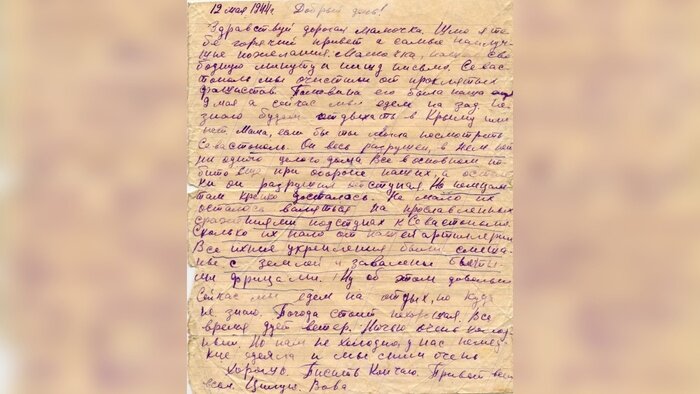 12 мая 1944г. Добрый день!
Здравствуй дорогая мамочка. Шлю я те
бе горячий привет и самые наилуч
шие пожелания. Мамочка, нашёл сво
бодную минуту и пишу письмо. Севас
тополь мы очистили от проклятых
фашистов. Половина его была наша
9 мая а сейчас мы едем на зад. Не
знаю будем отдыхать в Крыму или
нет Мама, если бы ты могла посмотреть
Севастополь. Он весь разрушен, в нем нет
ни одного целого дома Все в основном по
бито ещё при обороне наших, и остат
ки он разрушил отступая. Но немцам
там крепко досталось. Не мало их
осталось валяться на прославленных
сражениями подступах к Севастополю.
Сколько их пало от нашей артиллерии
Все ихние укрепления были смеша
ны с землей и завалены битты
ми фрицами. Ну об этом довольно
Сейчас мы едем на отдых, но куда
не знаю. Погода стоит нехорошая. Все
время дует ветер. Ночью очень холод
но. Но нам не холодно, у нас немец
кие одеяла и мы спим очень
хорошо. Писать кончаю. Привет
всем. Целую. Вова